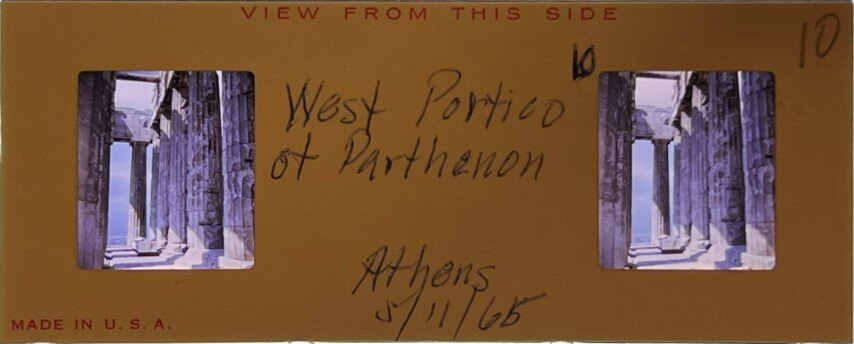 VIEW FROM THIS SIDE
10
10
West Portico
of Parthenon
Athens
5/11/65
MADE IN U.S.A.